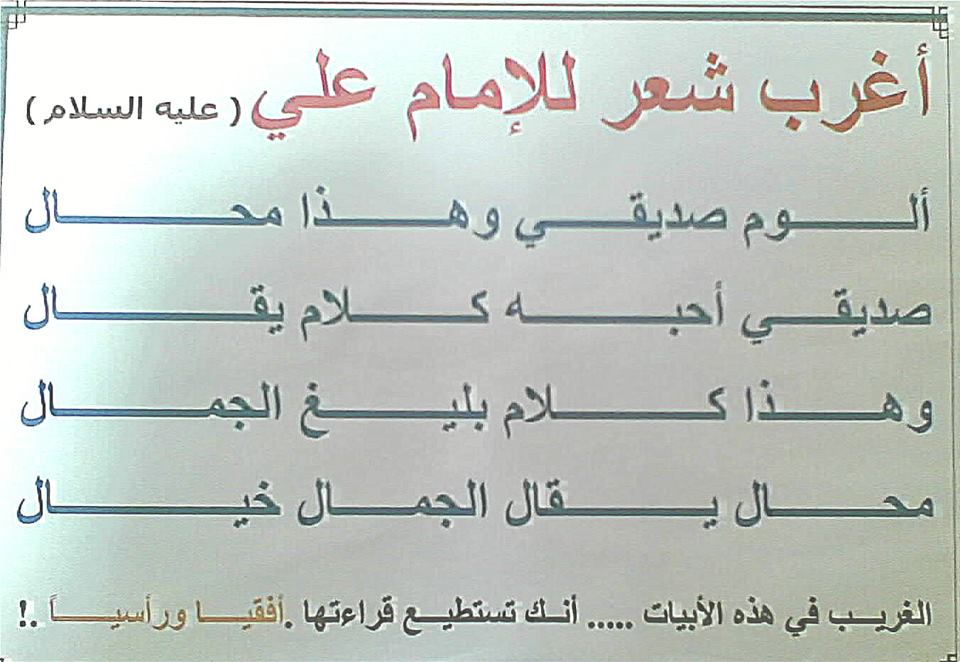 أغرب شعر للإمام علي ( عليه السلام )
ألـــوم صديقـــي وهـــذا محـــال
صديقـــي أحبـــه كـــلام يقـــال
وهـــذا كـــلام بليـــغ الجمـــال
محـــال يـــقال الجمـــال خيـــال
الغريــب في هذه الأبيات ..... أنــك تستطيــع قراءتها .أفقيــا ورأسيــاً .!